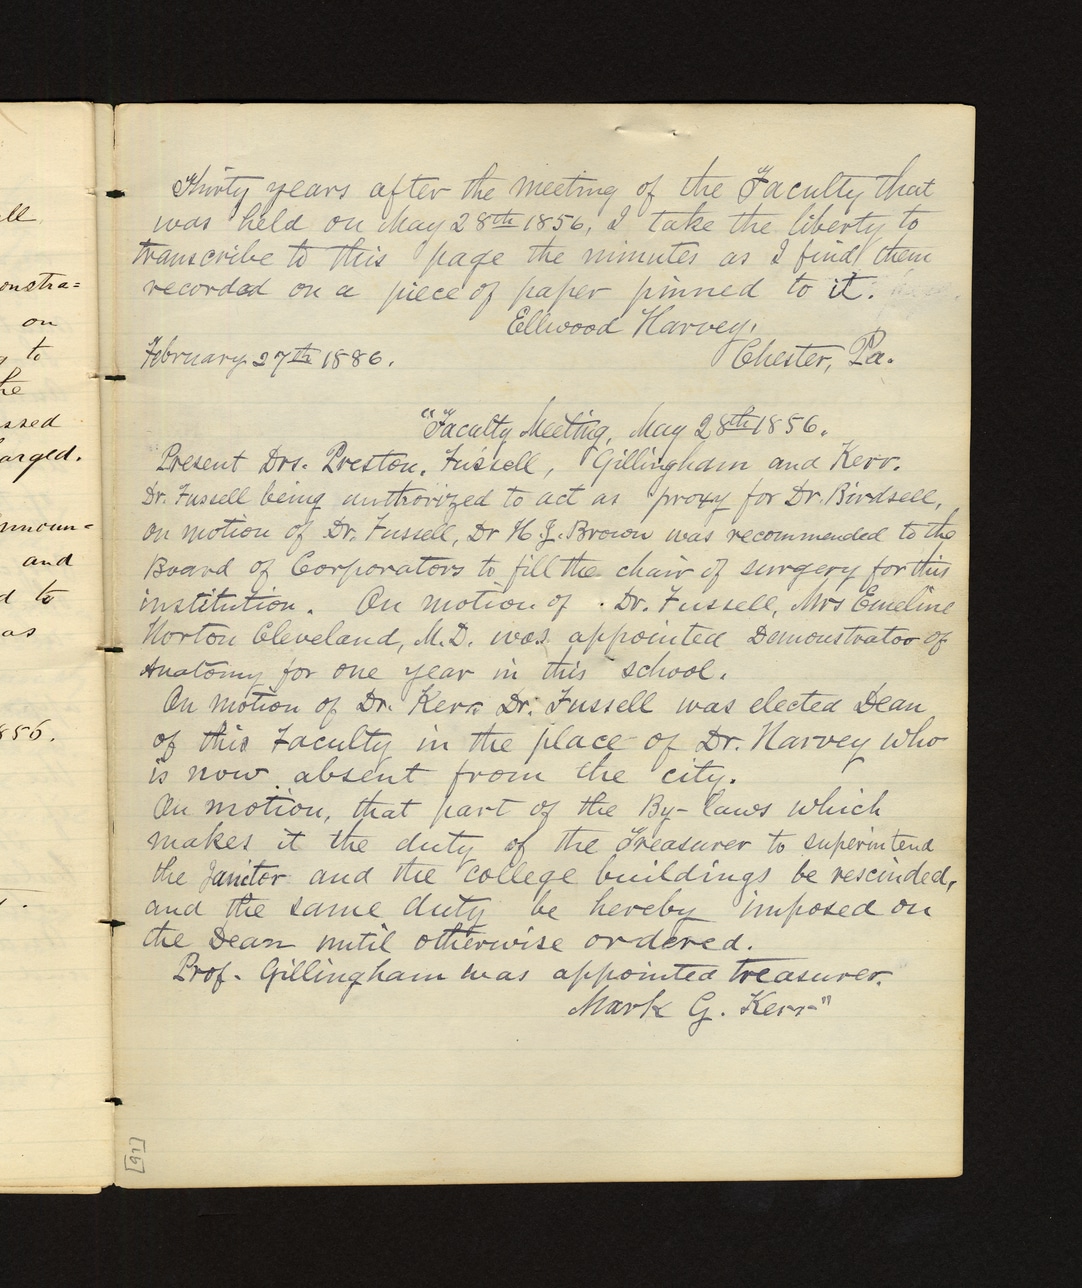 ll
onstra=
on
to
he
ssed
arged.
nnoun=
and
d to
as
856.
Thirty years after the meeting of the Faculty that
was held on May 28th 1856, I take the liberty to
transcribe to this page the minutes as I find them
recorded on a piece of paper pinned to it.
Ellwood Harvey,
February 27th 1886. Chester, Pa.
"Faculty Meeting, May 28th 1856.
Present Drs. Preston, Fussell, Gillingham and Kerr.
Dr. Fussell being authorized to act as proxy for Dr. Birdsell,
on motion of Dr. Fussell, Dr H. J. Brown was recommended to the
Board of Corporators to fill the chair of surgery for this
institution. On motion of Dr. Fussell, Mrs Emeline
Horton Cleveland, M.D. was appointed Demonstrator of
Anatomy for one year in this school.
On motion of Dr. Kerr Dr. Fussell was elected Dean
of this Faculty in the place of Dr. Harvey who
is now absent from the city.
On motion, that part of the By-laws which
makes it the duty of the Treasurer to superintend
the Janitor and the college buildings be rescinded,
and the same duty be hereby imposed on
the Dean until otherwise ordered.
Prof. Gillingham was appointed treasurer.
Mark G. Kerr"
[91]